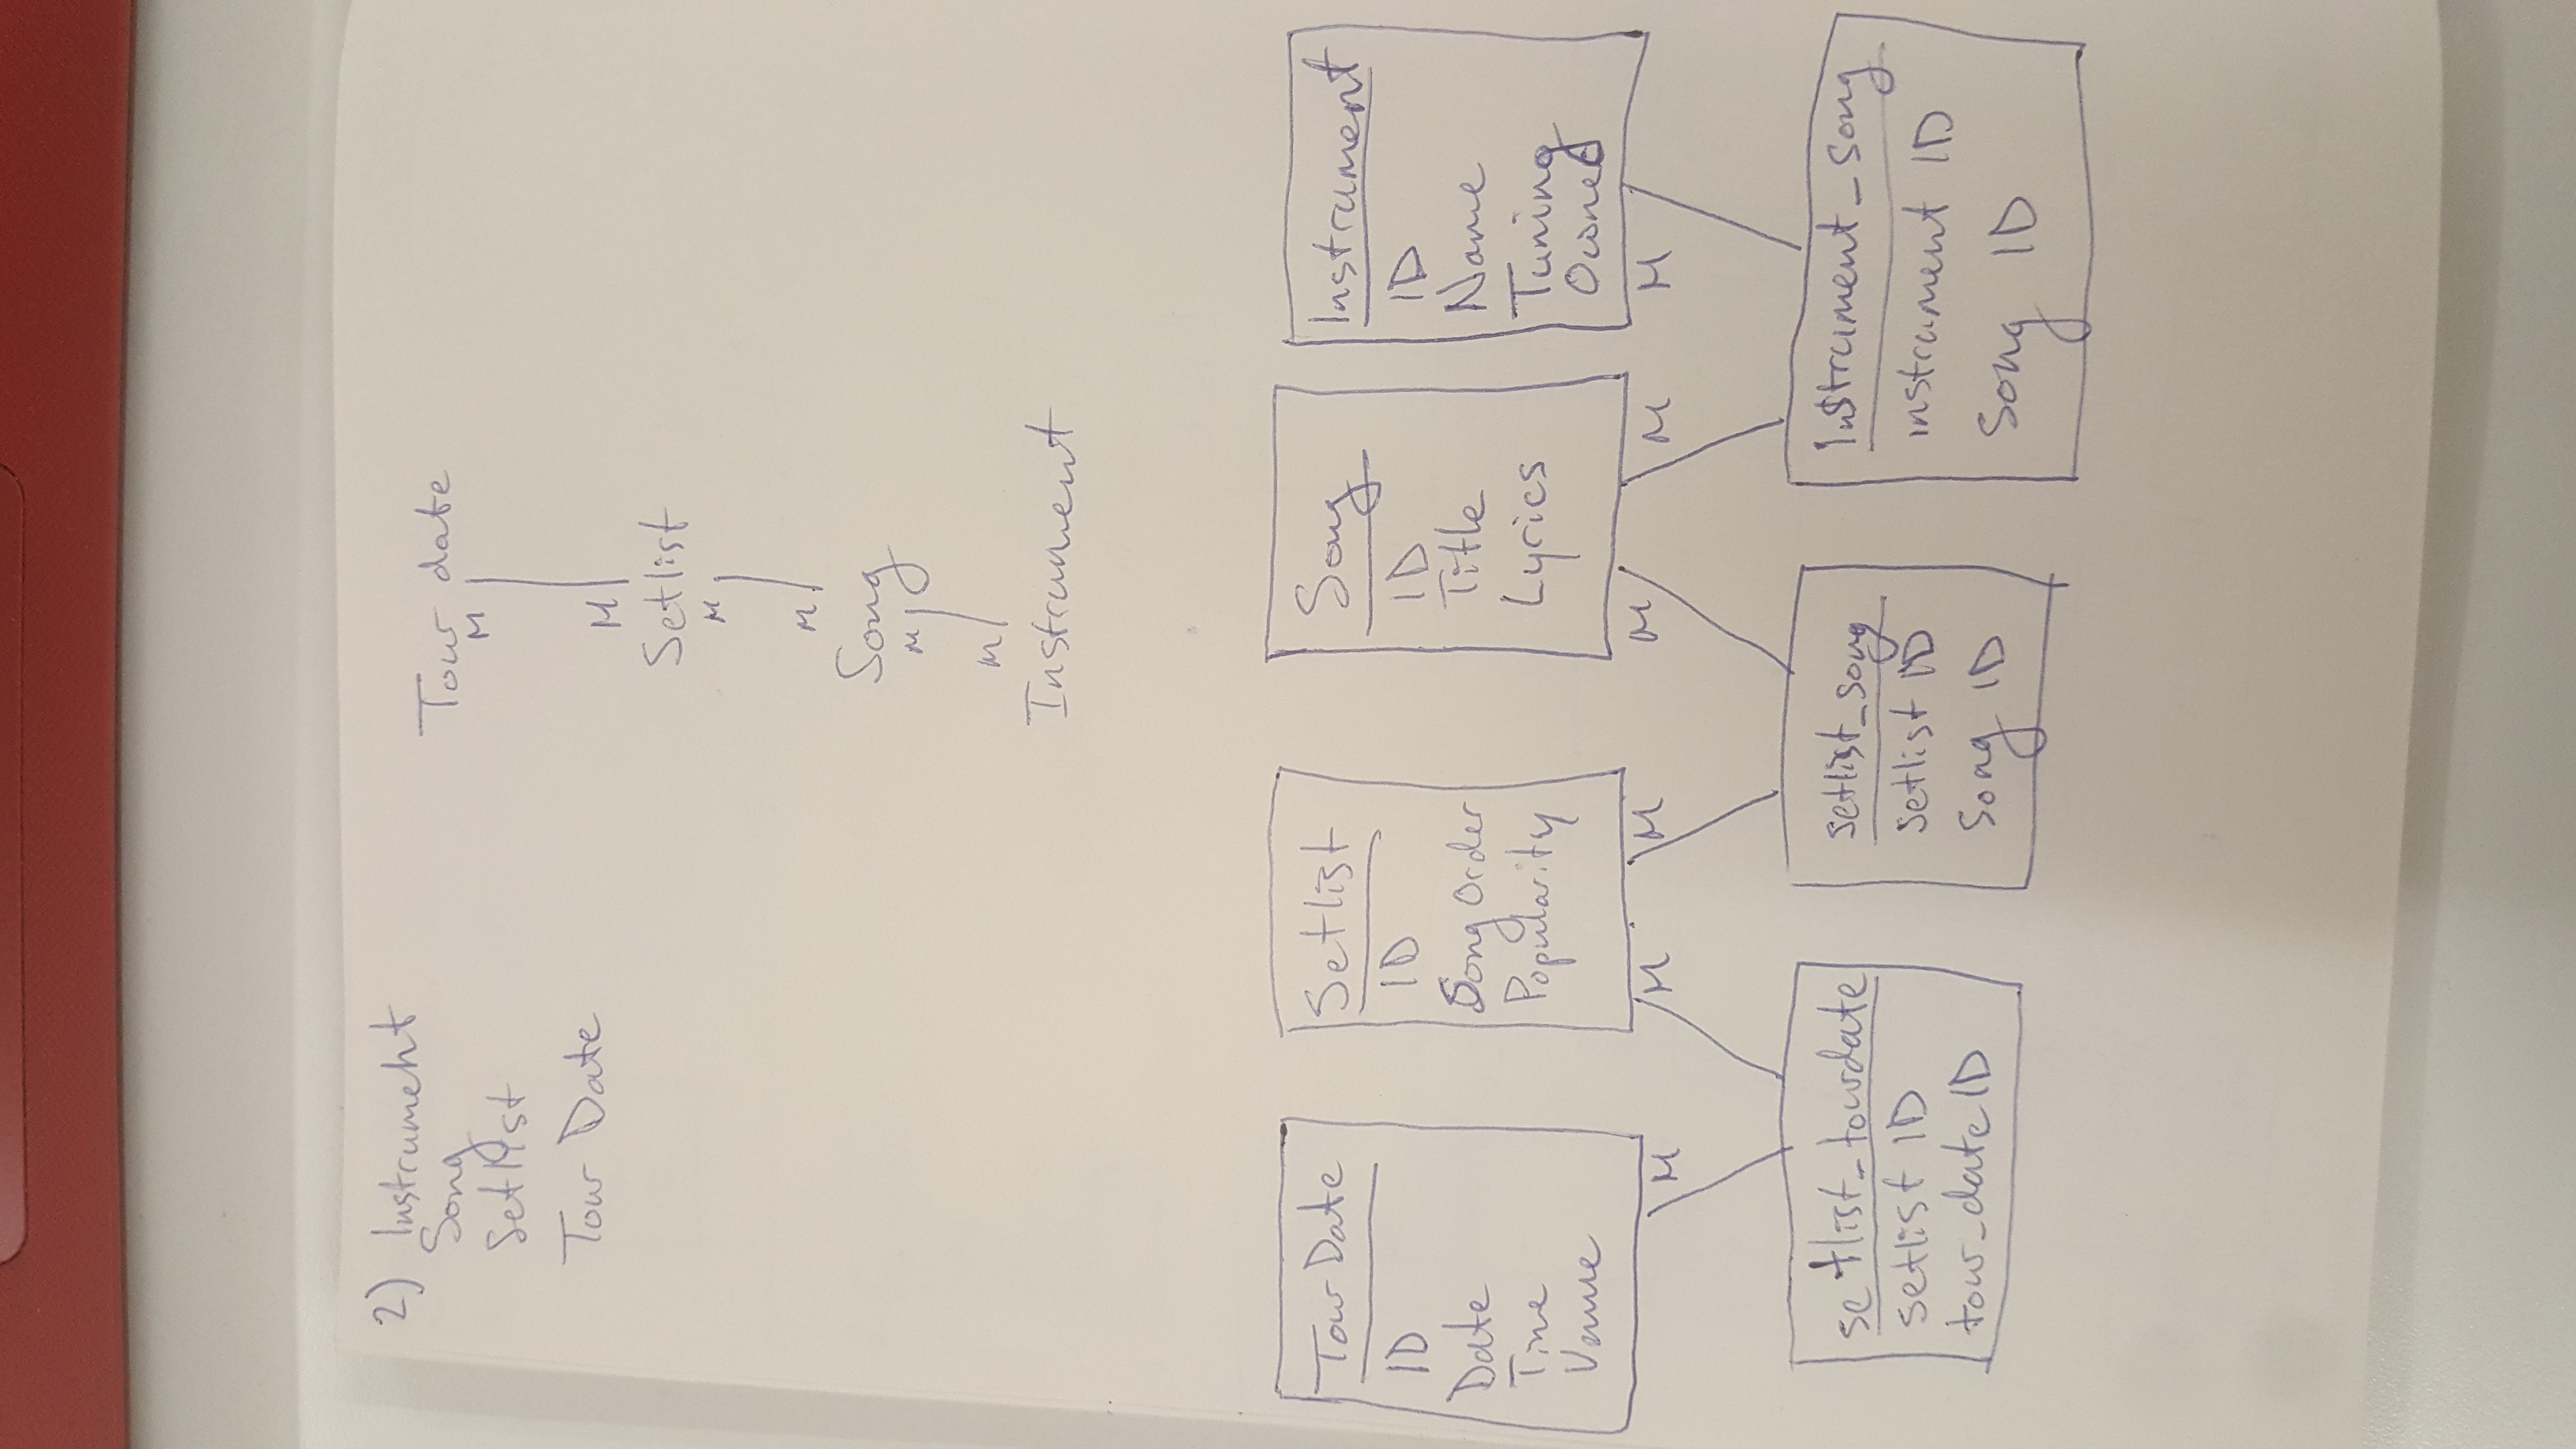 2) Instrument
Song
Setlist
Tour Date
Tour date
M
M
Setlist
M
M
Song
M
M
Instrument
Tour Date
ID
Date
Time
Venue
Setlist
ID
Song Order
Popularity
Song
ID
Title
Lyrics
Instrument
ID
Name
Tuning
Owned
M
M
M
M
M
M
setlist_tourdate
setlist ID
tour_date ID
setlist_song
setlist ID
Song ID
Instrument_song
instrument ID
Song ID